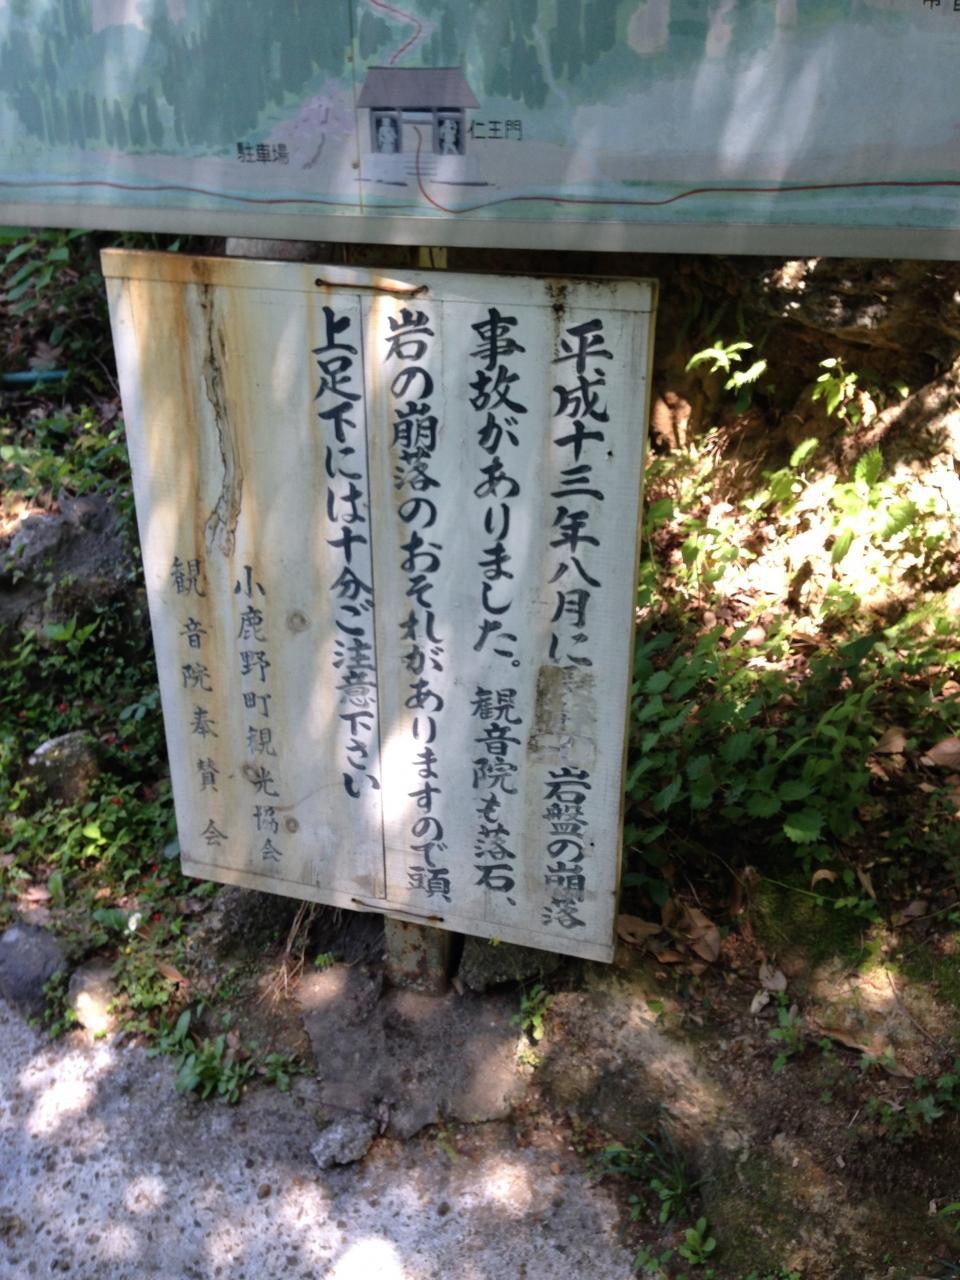 駐車場
仁王門
平成十三年八月に 岩盤の崩落
事故がありました。観音院も落石、
岩の崩落のおそれがありますので頭
上足下には十分ご注意下さい
小鹿野町観光協会
観音院奉賛会